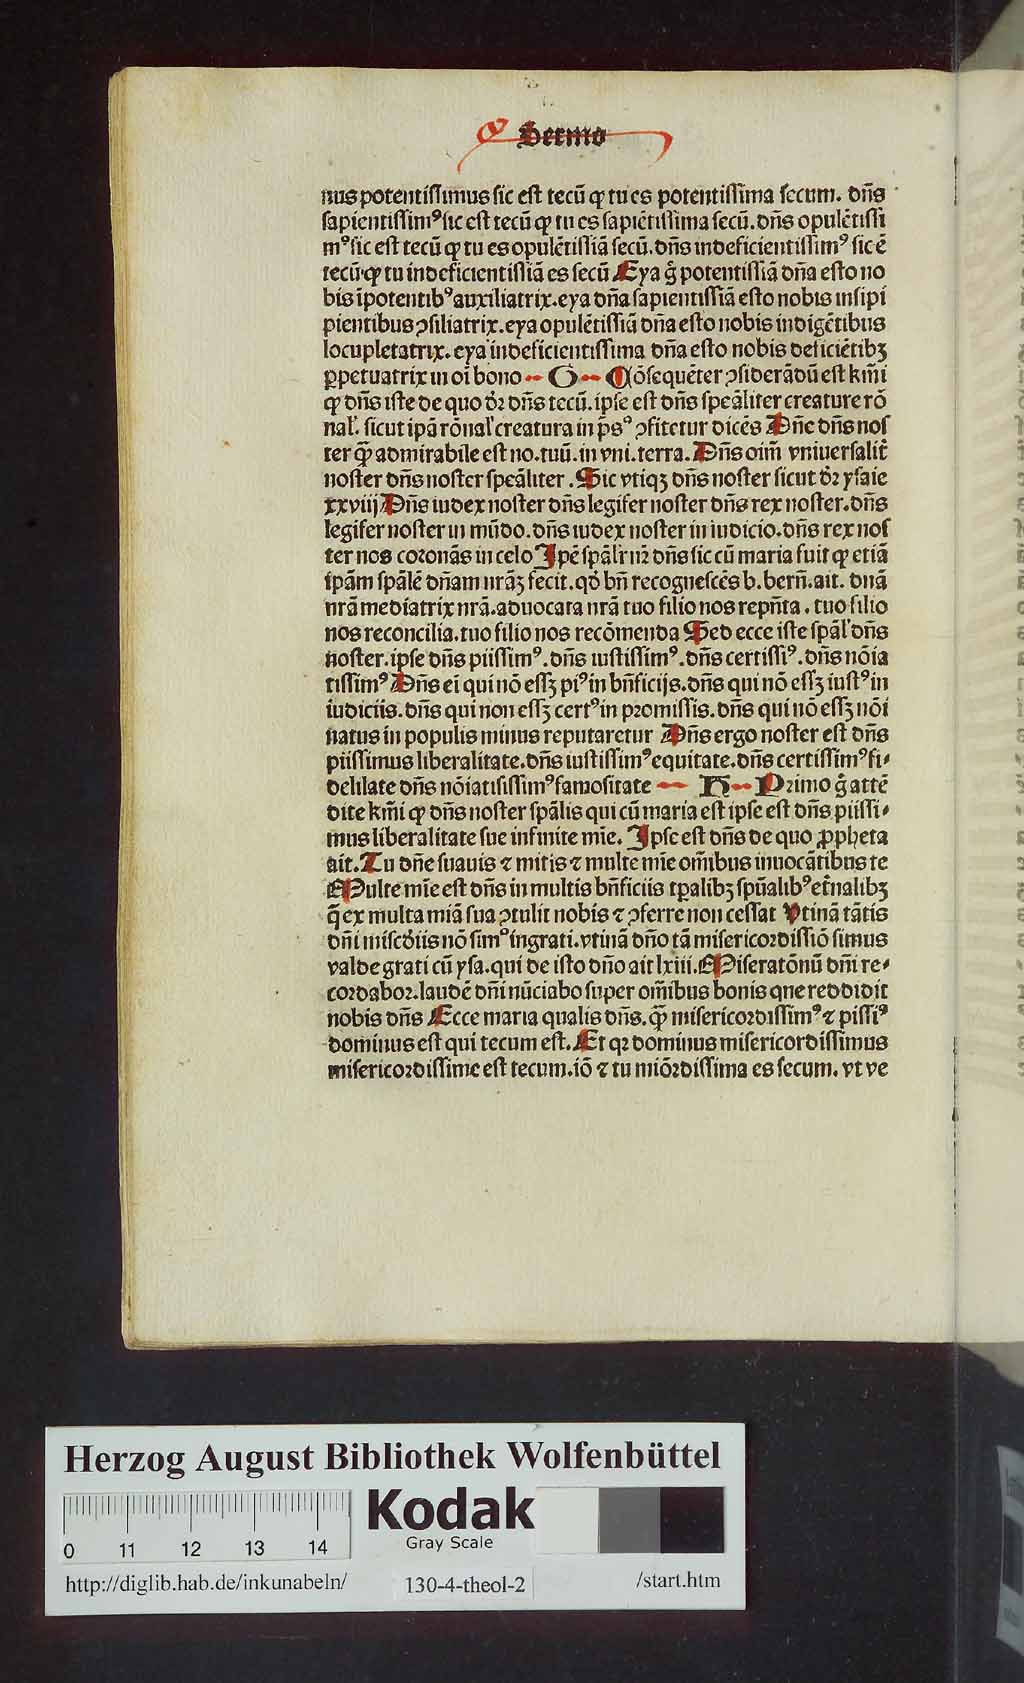 Sermo
nus potentissimus sic est tecū ꝙ tu es potentissima secum. dn̄s
sapientissimꝰ sic est tecū ꝙ tu es sapiētissima secū. dn̄s opulētissi
mꝰ sic est tecū ꝙ tu es opulētissiā secū. dn̄s indeficientissimꝰ sic ē
tecū ꝙ tu indeficientissiā es secū Eya g̊ potentissiā dn̄a esto no
bis īpotentibꝰ auxiliatrix. eya dn̄a sapientissiā esto nobis insipi
pientibus ꝯsiliatrix. eya opulētissiā dn̄a esto nobis indigētibus
locupletatrix. eya indeficientissima dn̄a esto nobis deficiētibꝫ
ꝑpetuatrix in oī bono G Cōsequēter ꝯsiderādū est km̄i
ꝙ dn̄s iste de quo dr̄ dn̄s tecū. ipse est dn̄s spēāliter creature rō
nal'. sicut ipā rōnal' creatura in p̄sꝰ ꝯfitetur dicēs Dn̄e dn̄s nos
ter ꝙ̄ admirabile est no. tuū. in vni. terra. Dn̄s oīm vniuersalit̄
noster dn̄s noster spēāliter. Sic vtiqꝫ dn̄s noster sicut dr̄ ysaie
xxviij Dn̄s iudex noster dn̄s legifer noster dn̄s rex noster. dn̄s
legifer noster in mūdo. dn̄s iudex noster in iudicio. dn̄s rex nos
ter nos coronās in celo Ipē spāl'r nr̄ dn̄s sic cū maria fuit ꝙ etiā
ipām spālē dn̄am nrāꝫ fecit. qd̛ bn̄ recognescēs b. bern̄. ait. dnā
nrā mediatrix nrā. aduocata nrā tuo filio nos repn̄ta. tuo filio
nos reconcilia. tuo filio nos recōmenda Sed ecce iste spāl' dn̄s
noster. ipse dn̄s piissimꝰ. dn̄s iustissimꝰ. dn̄s certissiꝰ. dn̄s nōia
tissimꝰ Dn̄s ei qui nō essꝫ piꝰ in bn̄ficijs. dn̄s qui nō essꝫ iustꝰ in
iudiciis. dn̄s qui non essꝫ certꝰ in promissis. dn̄s qui nō essꝫ nōi
natus in populis minus reputaretur Dn̄s ergo noster est dn̄s
piissimus liberalitate. dn̄s iustissimꝰ equitate. dn̄s certissimꝰ fi⸗
delilate dn̄s nōiatisissimꝰ famositate H Primo g̊ attē
dite km̄i ꝙ dn̄s noster spālis qui cū maria est ipse est dn̄s piissi⸗
mus liberalitate sue infinite mīe. Ipse est dn̄s de quo ꝓpheta
ait. Tu dn̄e suauis ⁊ mitis ⁊ multe mīe om̄ibus inuocātibus te
Multe mīe est dn̄s in multis bn̄ficiis tꝑalibꝫ spūalibꝰ et̄nalibꝫ
q̄ ex multa miā sua ꝯtulit nobis ⁊ ꝯferre non cessat Vtinā tātis
dn̄i miscd̛iis nō simꝰ ingrati. vtinā dn̄o tā misericordissiō simus
valde grati cū ysa. qui de isto dn̄o ait lxiii. Miseratōnū dn̄i re⸗
cordabor. laudē dn̄i nūciabo super om̄ibus bonis que reddidit
nobis dn̄s Ecce maria qualis dn̄s. ꝙ̄ misericordissimꝰ ⁊ pissiꝰ
dominus est qui tecum est. Et qr dominus misericordissimus
misericordissime est tecum. iō ⁊ tu miōrdissima es secum. vt ve
Herzog August Bibliothek Wolfenbüttel
0 11 12 13 14
Kodak
Gray Scale
http://diglib.hab.de/inkunabeln/
130-4-theol-2
/start.htm